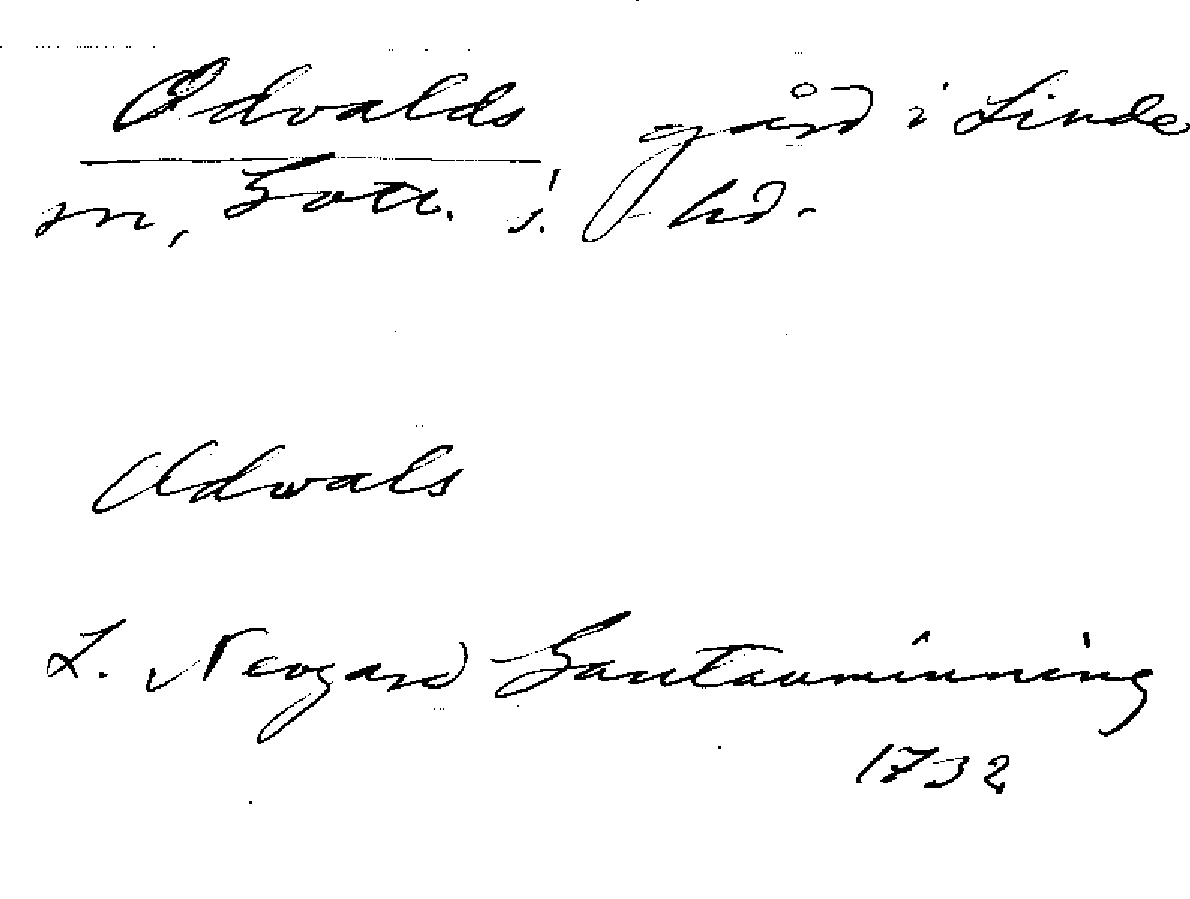 Odvalds gård i Linde
sn, Gotl. s. hd.
Adwals
L. Neogard Gautauminning
1732